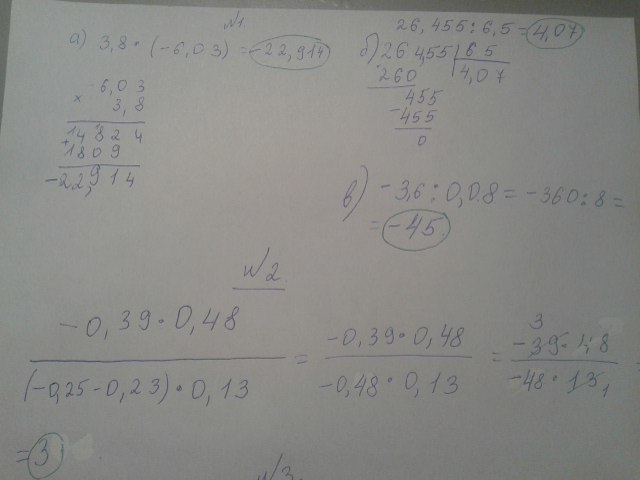 №1.
а) 3,8 · (-6,03) = -22,914
6,03
× 3,8
14824
+1809
-22,914
26,455 : 6,5 = 4,07
б) 264,55 | 65
260 | 4,07
455
-455
0
в) -3,6 : 0,08 = -360 : 8 =
= -45
№2.
-0,39 · 0,48 / (-0,25-0,23) · 0,13 = -0,39 · 0,48 / -0,48 · 0,13 = 3 -39 · 48 / -48 · 13 1
= 3
№3.